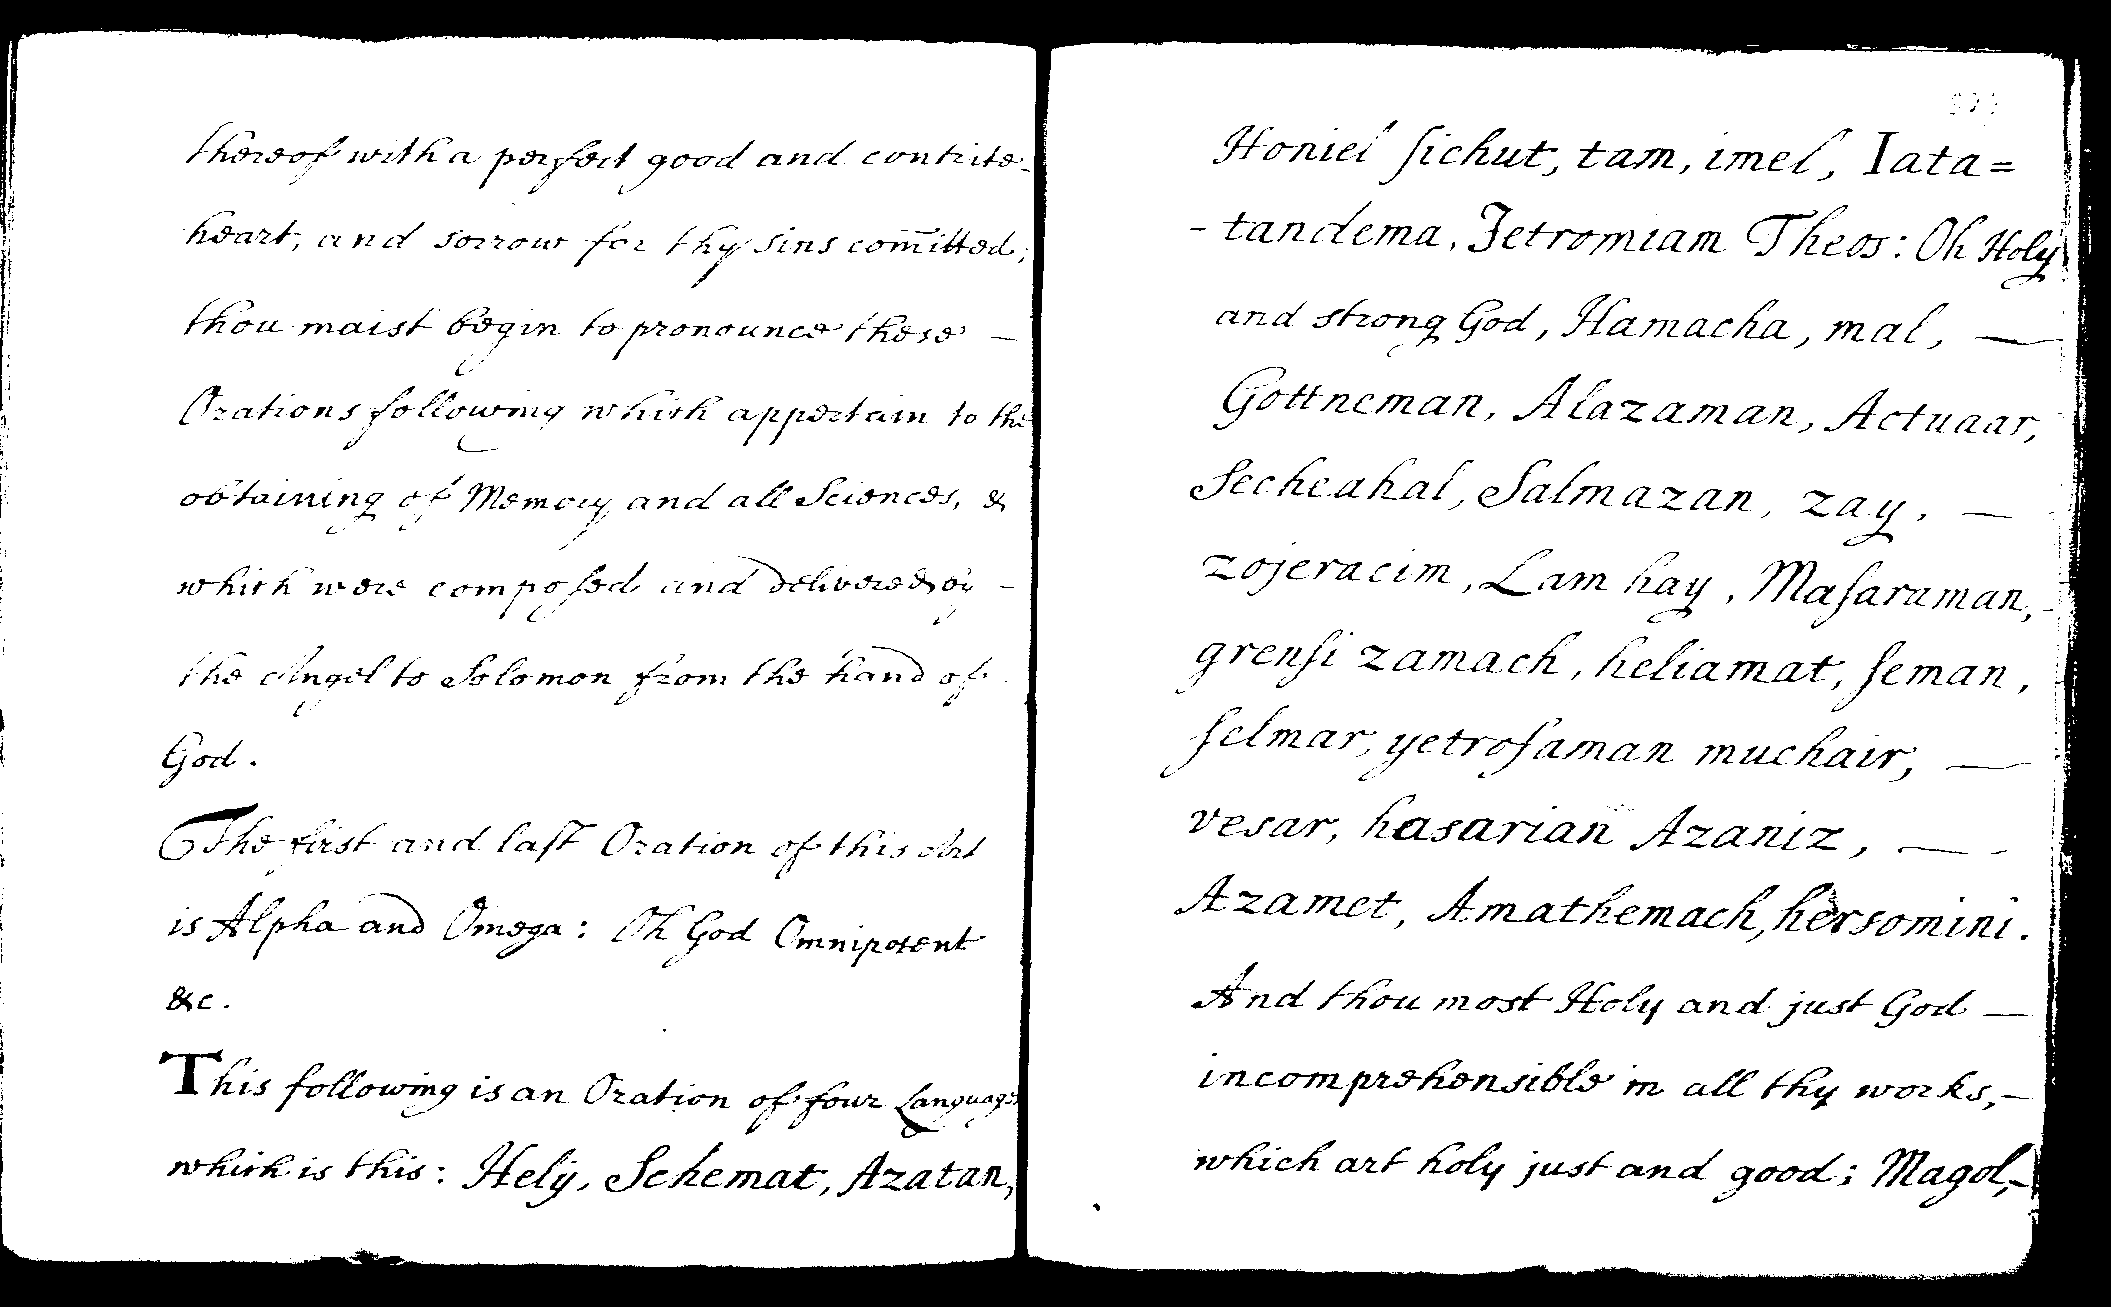 thereof with a perfect good and contrite-
heart, and sorrow for thy sins com̄itted;
thou maist begin to pronounce these —
Orations following which appertain to the
obtaining of Memory and all Sciences, &
which were composed and delivered by -
the Angel to Solomon from the hand of
God.
The first and last Oration of this Art
is Alpha and Omega: Oh God Omnipotent
&c.
This following is an Oration of four Languages
which is this: Hely, Schemat, Azatan,
Honiel sichut, tam, imel, Iata=
-tandema, Jetromiam Theos: Oh Holy
and strong God, Hamacha, mal, —
Gottneman, Alazaman, Actuaar,
Secheahal, Salmazan, zay, —
zojeracim, Lam hay, Masaraman, -
grensi zamach, heliamat, seman,
selmar, yetrosaman muchair, —
vesar, hasarian Azaniz, — -
Azamet, Amathemach, hersomini.
And thou most Holy and just God —
incomprehensible in all thy works, —
which art holy just and good; Magol, -